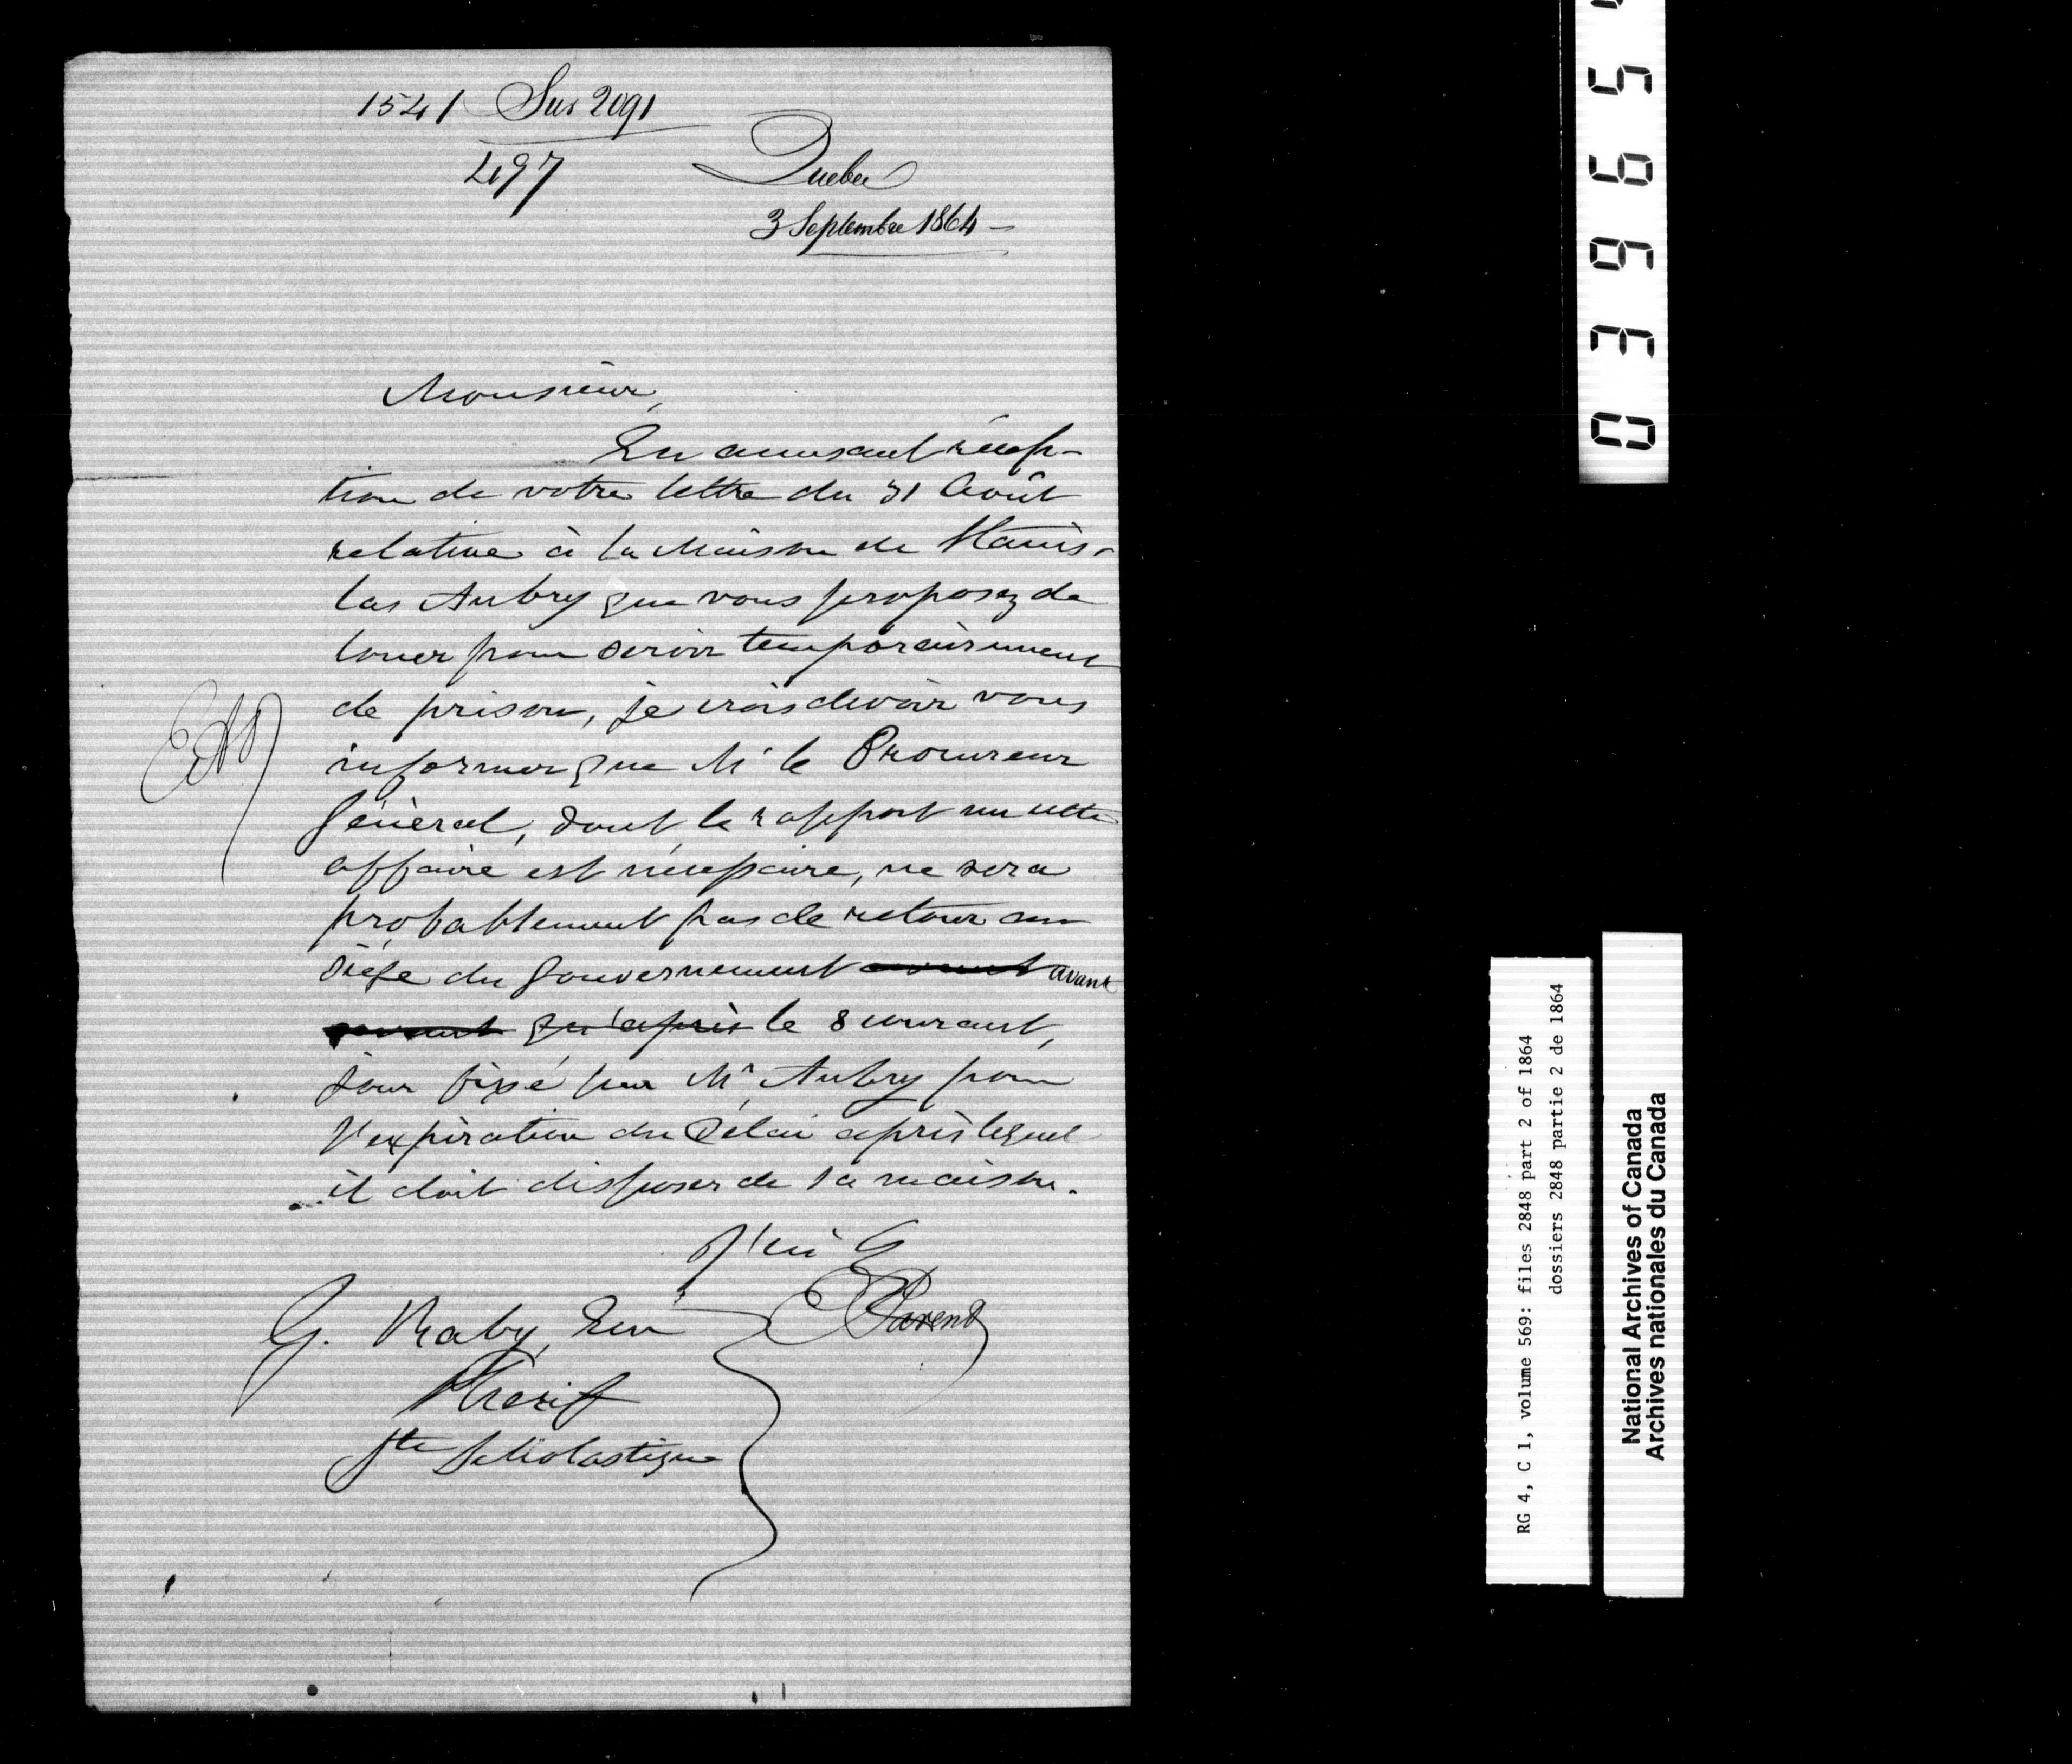 1541 Sur 2091
497
Quebec
3 Septembre 1864 —
Monsieur,
En accusant récep-
tion de votre lettre du 31 Août
relative à la Maison de Stanis-
las Aubry que vous proposez de
louer pour servir temporairement
de prison, je crois devoir vous
informer que Mr le Procureur
Général, dont le rapport sur cette
affaire est nécessaire, ne sera
probablement pas de retour au
siége du Gouvernement avant avant
qu'après le 8 courant,
jour fixé par Mr Aubry pour
l'expiration du délai après lequel
il doit disposer de sa maison.
J'ai &
E Parent
G. Raby, Ecr
Sherif
Ste Scholastique
03965
RG 4, C 1, volume 569: files 2848 part 2 of 1864
dossiers 2848 partie 2 de 1864
National Archives of Canada
Archives nationales du Canada